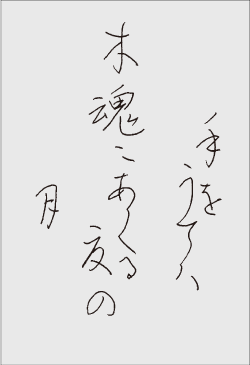 手をうてハ
木魂にあくる夏の
月